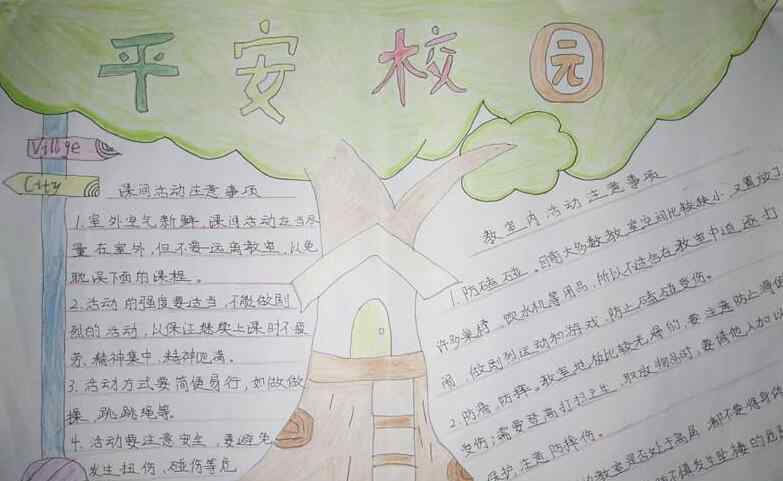 平安校园
Villge
City
课间活动注意事项
1.室外空气新鲜,课间活动应当尽
量在室外,但不要远离教室,以免
耽误下面的课程。
2.活动的强度要适当,不能做剧
烈的活动,以保证继续上课时不疲
劳,精神集中,精神饱满。
3.活动方式要简便易行,如做做
操,跳跳绳等。
4.活动要注意安全,要避免
发生扭伤,碰伤等危
教室内活动注意事项
1.防磕碰。目前大多数教室空间比较狭小,又置放了
许多桌椅、饮水机等用品,所以不应在教室中追逐打
闹,做剧烈运动和游戏,防止磕碰受伤。
2.防滑,防摔。教室地板比较光滑的,要注意防止滑倒
受伤;需要登高打扫卫生、取放物品时,要请他人加以
保护,注意防摔伤。
教室是否处于高层,都不要将身体
发生坠楼的危险